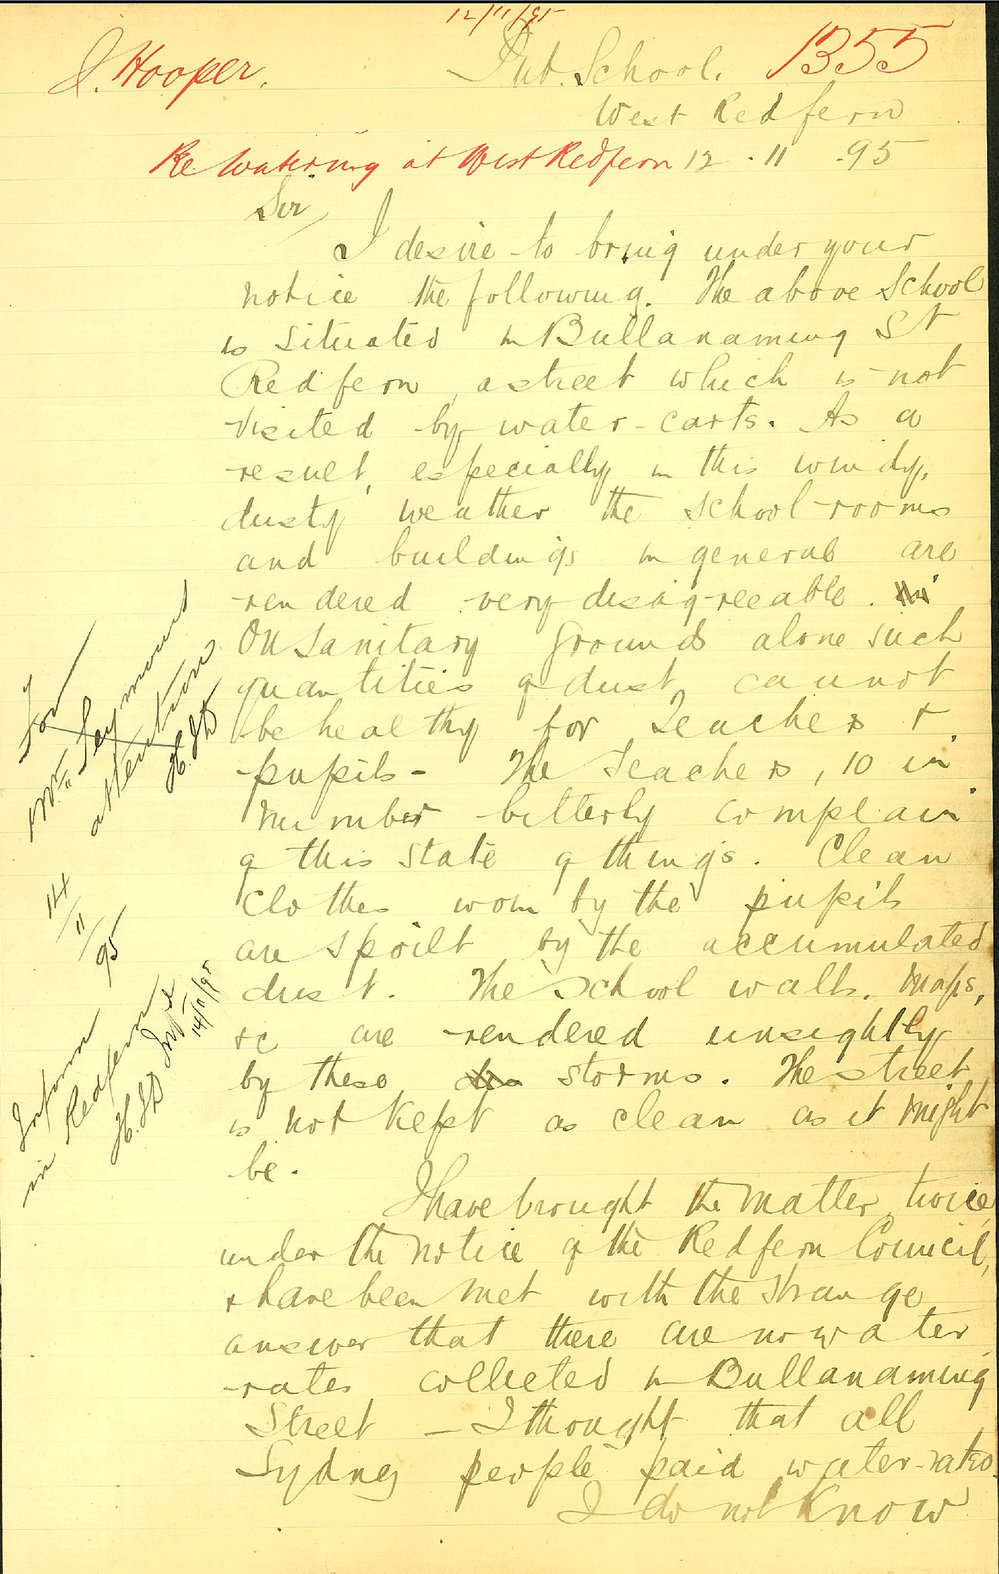 12/11/95
J. Hooper.
Pub. School. 1355
West Redfern
Re Watering at West Redfern 12 . 11 . 95
Sir,
I desire to bring under your
notice the following. The above School
is situated in Bullanaming St
Redfern, a street which is not
visited by water-carts. As a
result, especially in this windy,
dusty weather the school-rooms
and buildings in general are
rendered very disagreeable.
On sanitary grounds alone such
quantities of dust cannot
be healthy for Teachers &
pupils - The Teachers, 10 in
number bitterly complain
of this state of things. Clean
clothes worn by the pupils
are spoilt by the accumulated
dust. The School walls, maps,
&c are rendered unsightly
by these storms. The street
is not kept as clean as it might
be.
I have brought the matter, twice,
under the notice of the Redfern Council,
& have been met with the strange
answer that there are no water
rates collected in Bullanaming
Street - I thought that all
Sydney people paid water-rates.
I do not know
For
Mr. Seymours
attention
14/11/95
Inform
in Redferns
14/11/95